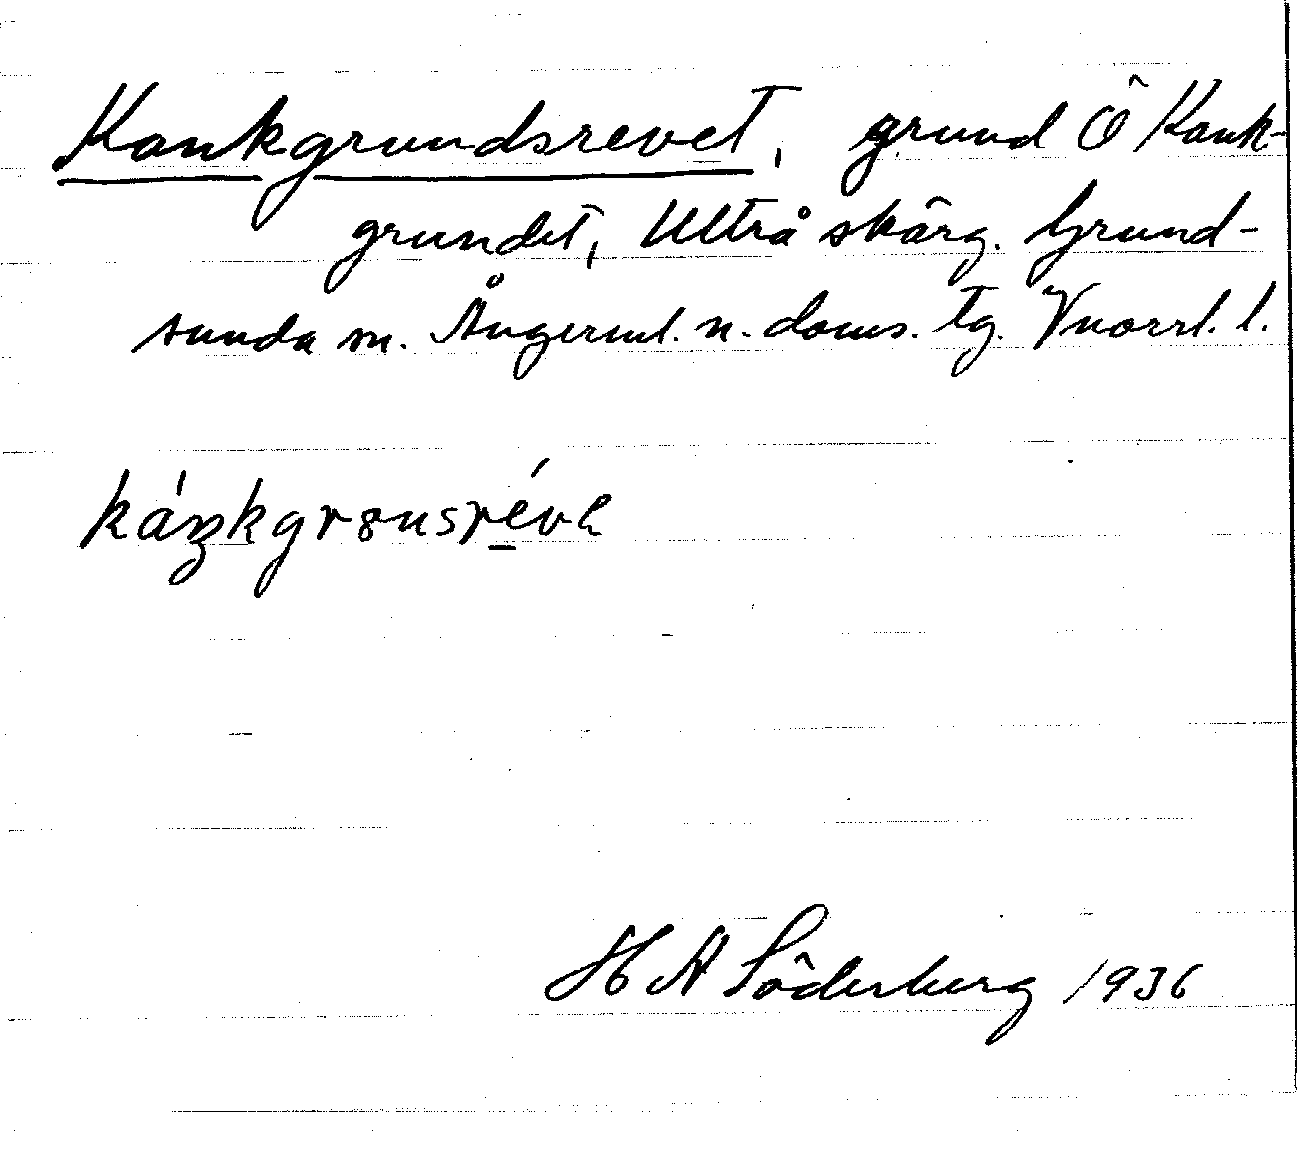 Kankgrundsrevet, grund Ö Kank-
grundet, Ultrå skärg. Grund-
sunda sn. Ångerml. n. doms. tg. Vnorrl. l.
H A Söderberg 1936